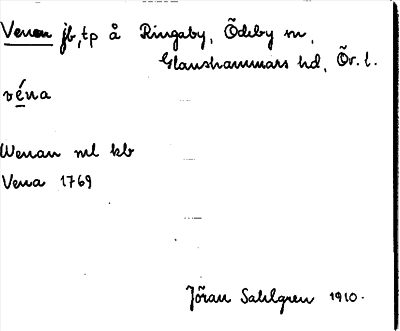 Venan jb, tp å Ringaby, Ödeby sn,
Glanshammars hd, Ör. l.
véna
Wenan ml kb
Vena 1769
Jöran Sahlgren 1910.